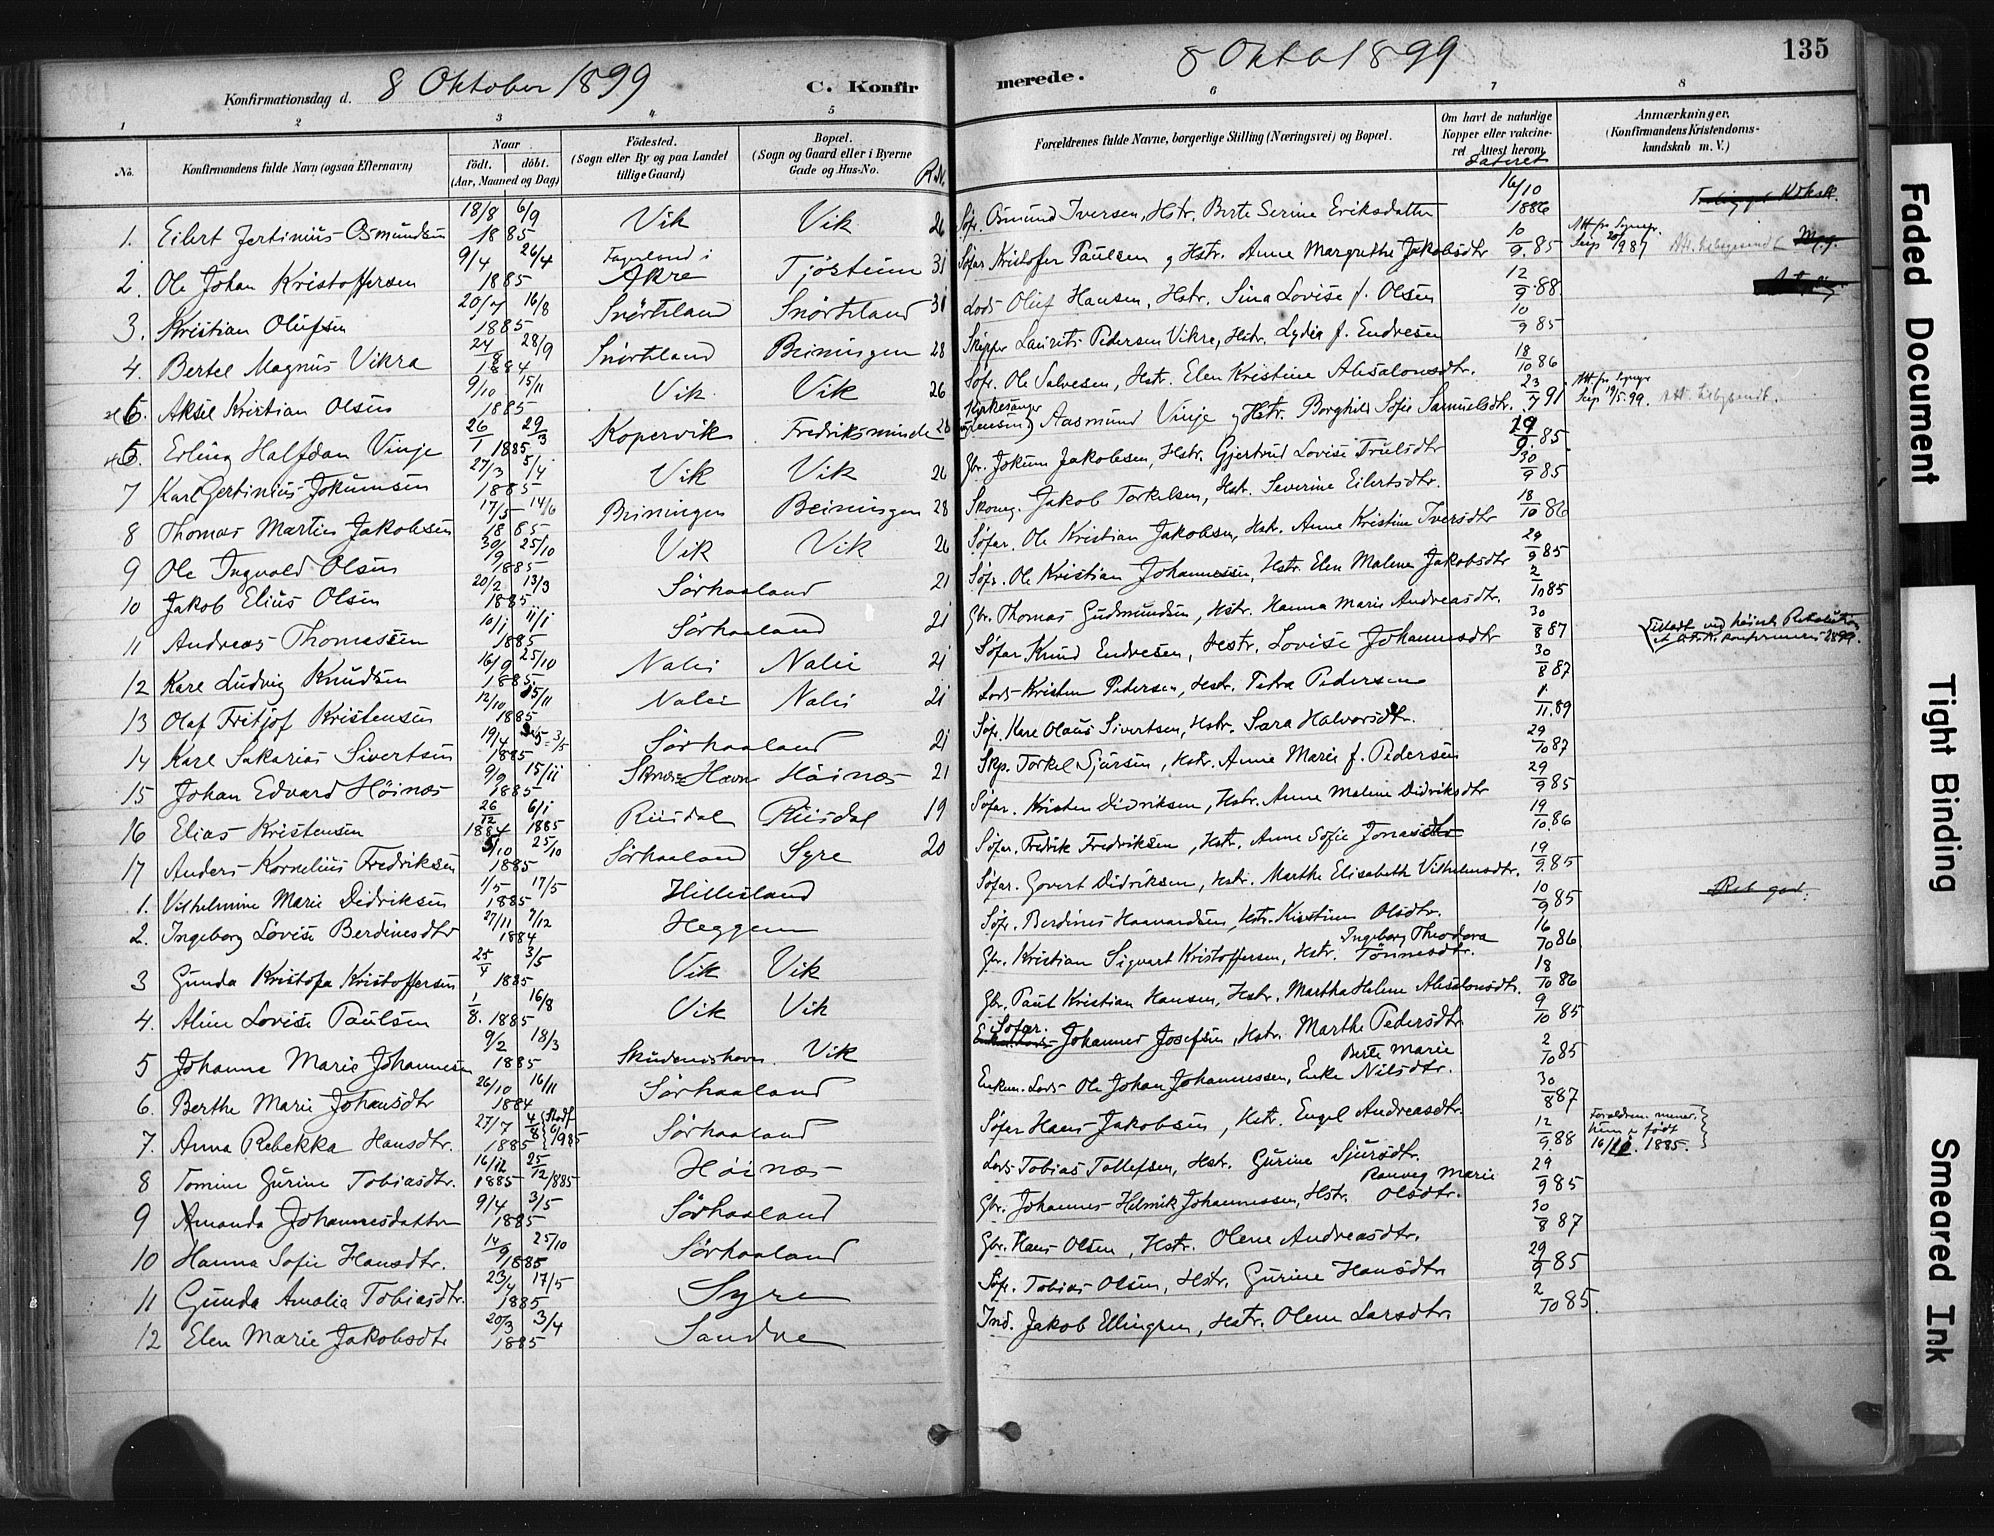 8 Oktober 1899
8 Oktb 1899
135
Konfirmationsdag d.
C. Konfirmerede.
1 2 3 4 5 6 7 8
No.
Konfirmandens fulde Navn (ogsaa Efternavn)
Naar
født. døbt.
(Aar, Maaned og Dag)
Fødested.
(Sogn eller By og paa Landet
tillige Gaard)
Bopæl.
(Sogn og Gaard eller i Byerne
Gade og Hus-No.
Forældrenes fulde Navne, borgerlige Stilling (Næringsvei) og Bopæl.
Om havt de naturlige
Kopper eller vakcine-
ret. Attest herom
dateret
Anmærkninger.
(Konfirmandens Kristendoms-
kundskab m. V.)
1. Eilert Jertinius Osmundsen 18/8 6/9 1885 Vik Vik 26 Søfr. Osmund Iversen, Hstr. Berte Serine Eriksdatter 16/10 1886
2. Ole Johan Kristoffersen 9/4 26/4 1885 Fagerland i Akre Tjøsteim 31 Søfar Kristofer Paulsen og Hstr. Anne Margrethe Jakobsdtr 10/9 85
3. Kristian Olufsen 20/7 16/8 1885 Snørteland Snørteland 31 Lods Oluf Hansen, Hstr. Sina Lovise f. Olsen 12/9 88
4. Bertel Magnus Vikra 24/8 28/9 1884 Snørteland Beiningen 28 Skipper Laurits Pedersen Vikre, Hstr. Lydia f. Endresen 10/9 85
6. Aksel Kristian Olsen 9/10 15/11 1885 Vik Vik 26 Søfr. Ole Salvesen, Hstr. Elen Kristine Absalonsdtr. 18/10 86
5. Erling Halfdan Vinje 26/1 29/3 1885 Kopervik Fredriksminde 26 Kirkesanger Aasmund Vinje og Hstr. Borghild Sofie Samuelsdtr. 23/7 91
7 Karl Gertinius Jokumsen 27/3 5/4 1885 Vik Vik 26 Gbr. Jokum Jakobsen, Hstr. Gjertrud Lovise Trulsdtr 29/9 85
8 Thomas Martin Jakobsen 17/5 14/6 1885 Beiningen Beiningen 28 Skomg. Jakob Torkelsen, Hstr. Severine Eilertsdtr. 30/9 85
9 Ole Ingvald Olsen 30/9 25/10 1885 Vik Vik 26 Søfar. Ole Kristian Jakobsen, Hstr. Anne Kristine Iversdtr 18/10 86
10 Jakob Elius Olsen 20/2 13/3 1885 Sørhaaland 21 Søfr. Ole Kristian Johannessen, Hstr. Elen Malene Jakobsdtr 29/9 85
11 Andreas Thomassen 10/1 11/1 1885 Sørhaaland 21 Gbr. Thomas Gudmundsen, Hstr. Hanna Marie Andreasdtr. 2/10 85
12 Karl Ludvig Knudsen 16/9 25/10 1885 Nalei Nalei 21 Søfar Knud Endresen, Hstr. Lovise Johannesdtr 30/8 87
13 Olaf Fritjof Kristensen 12/10 15/11 1885 Nalei Nalei 21 Lods Kristen Pedersen, Hstr. Petra Pedersen 30/8 87
14 Karl Sakarias Sivertsen 19/4 3/5 1885 Sørhaaland 21 Søfr. Karl Olaus Sivertsen, Hstr. Sara Halvorsdtr. 1/11 89
15 Johan Edvard Høinæs 9/9 15/11 1885 Høinæs 21 Skp. Torkel Sjursen, Hstr. Anne Marie f. Pedersen 29/10 87
16 Elias Kristensen 26/12 1884 6/1 1885 Riisdal Riisdal 19 Søfar. Kristen Didriksen, Hstr. Anne Malene Didriksdtr 29/9 85
17 Anders Kornelius Fredriksen 5/10 25/10 1885 Sørhaaland Syre 20 Søfar. Fredrik Fredriksen, Hstr. Anne Sofie Jonasdtr 19/10 86
1. Vilhelmine Marie Didriksen 1/5 17/5 1885 Hillesland Søfar. Govert Didriksen, Hstr. Marthe Elisabeth Vilhelmsdtr. 19/9 85
2. Ingeborg Lovise Berdinesdtr 27/11 7/12 1884 Heggem Søfr. Berdines Haavardsen, Hstr. Kirstine Olsdtr. 10/9 85
3 Gunda Kristofa Kristoffersen 25/4 3/5 1885 Vik Vik Gbr. Kristian Sigvart Kristoffersen, Hstr. Ingeborg Theodora Tønnesdtr. 16/10 86
4. Aline Lovise Paulsen 1/8 16/8 1885 Vik Vik Gbr. Paul Kristian Hansen, Hstr. Martha Helene Absalonsdtr. 18/10 86
5 Johanna Marie Johannesen 9/2 18/3 1885 Skudeneshavn Vik Søfar. Johannes Josefsen, Hstr. Marthe Pedersdtr 9/10 85
6. Berthe Marie Johansdtr 26/10 16/11 1884 Sørhaaland Enkem. Lods Ole Johan Johannessen, Enke Berte Marie Nilsdtr. 2/10 85
7. Anna Rebekka Hansdtr. 27/7 1885 Sørhaaland Søfar Hans Jakobsen, Hstr. Engel Andreasdtr. 30/8 87
8 Tomine Gurine Tobiasdtr. 16/12 1885 25/12 1885 Høinæs Lods Tobias Tollefsen, Hstr. Gurine Sjursdtr. 12/9 88 Forældrene mener, hun er født 16/12 1885.
9 Amanda Johannesdatter 9/4 3/5 1885 Sørhaaland Gbr. Johannes Helmik Johannessen, Hstr. Ranveg Marie Olsdtr. 29/9 85
10 Hanna Sofie Hansdtr. 14/9 25/10 1885 Sørhaaland Gbr. Hans Olsen, Hstr. Olene Andreasdtr. 30/8 87
11 Gunda Amalia Tobiasdtr. 23/4 17/5 1885 Syre Søfr. Tobias Olsen, Hstr. Gurine Hansdtr 29/9 85
12 Elen Marie Jakobsdtr 20/3 3/4 1885 Sandve Ind. Jakob Ellingsen, Hstr. Olene Larsdtr. 2/10 85.
Faded Document
Tight Binding
Smeared Ink